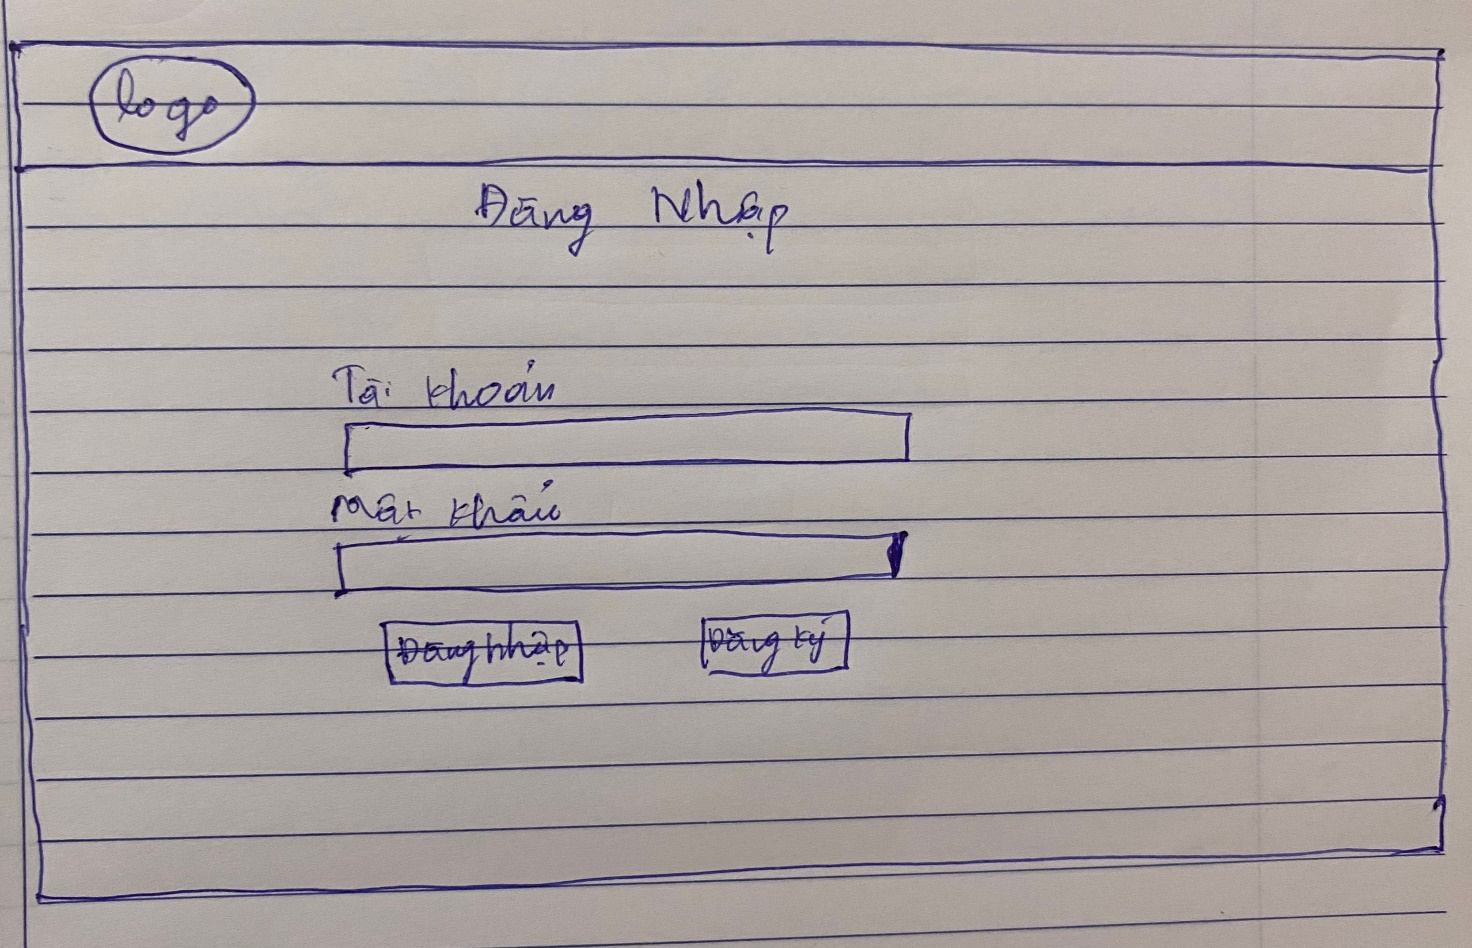 logo
Đăng Nhập
Tài khoản
Mật khẩu
Đăng nhập Đăng ký